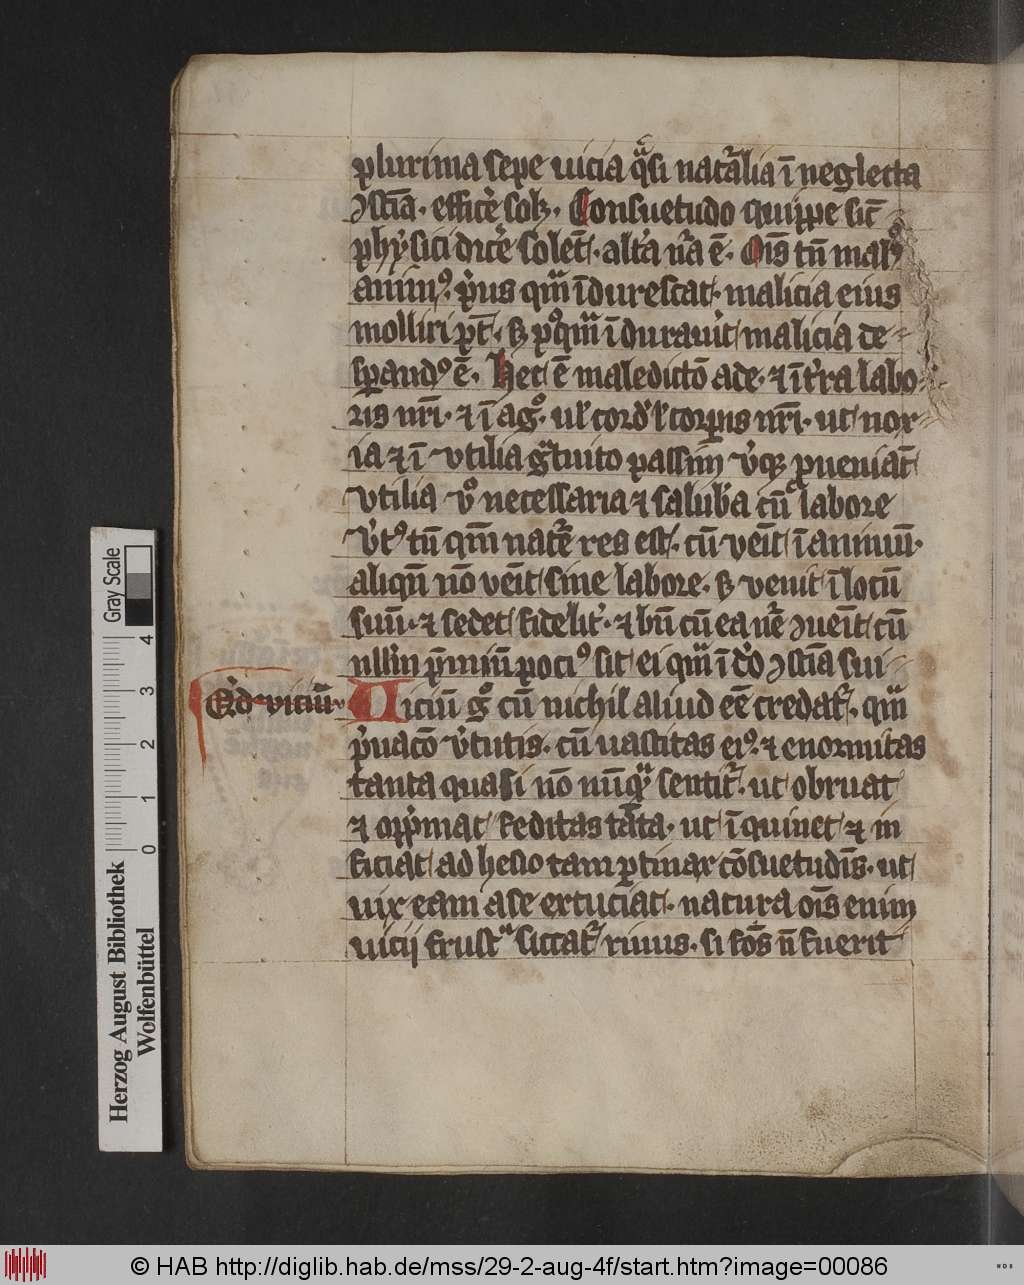 plurima sepe uicia q̃si natᷓalia ī neglecta
ↄsciā. efficẽ solꝫ. Consuetudo quippe sic̄
phẏsici dicẽ solēt. altᷓa nᷓa ē. Oīs tn̄ malꝰ
animꝰ. pͥus qᷓm īdurescat malicia eius
molliri pt̄. sꝫ pꝰqᷓm īdurauͥt malicia de-
spandꝰ ē. Hec ē maledictō ade. ⁊ ī tᷓra labo-
ris nr̄i. ⁊ ī agᷓo. ul̕ cord̕ l̕ corꝑis nr̄i. ut nox-
ia ⁊ ī vtilia gᷓtuito passim vͥqꝫ ꝓueniāt
Vtilia v̊ necessaria ⁊ salubͥa cū labore
Vtͥꝰ tn̄ qm̄ natẽ res est. cū veīt ī animū.
aliqn̄ nō veīt sine labore. sꝫ venit ī locū
suū. ⁊ sedet fidelitͥ. ⁊ bn̄ cū ea nẽ ↄueīt cū
p̄miū pociꝰ sit ei qᷓm ī ↄsciā sui-
Qͥd viciū.
Uiciū gͦ cū nichil aliud eē̄ credat̃. qᷓm
pͥuacō vͥtutis. cū uastitas eiꝰ. ⁊ enormitas
tanta quasi nō nūqᷓ sentit̃. ut obruat
⁊ oppͥmat feditas tāta. ut īquinet ⁊ in
ficiat adhesio tam ꝑtinax cōsuetudīs. ut
uix eam a se extuc̄iat. natura oīs enim
uicij frustᷓ siccat̃ riuus. si fōs n̄ fuerit
Herzog August Bibliothek
Wolfenbüttel
0 1 2 3 4
Gray Scale
© HAB http://diglib.hab.de/mss/29-2-aug-4f/start.htm?image=00086